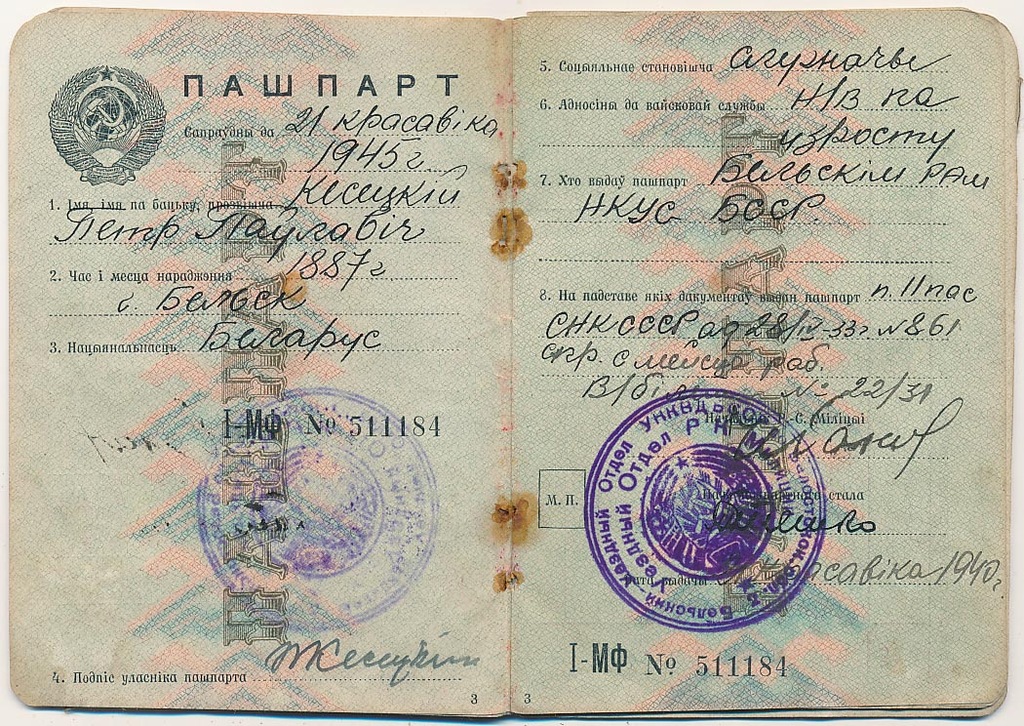 ПАШПАРТ
Сапраўдны да 21 красавіка
1945 г.
1. Імя, імя па бацьку, прозвішча Кесецкій
Петр Паулавіч
2. Час і месца нараджэння 1887 г
г. Бельск
3. Нацыянальнасць Беларус
I-МФ № 511184
4. Подпіс уласніка пашпарта
3
5. Соцыяльнае становішча
6. Адносіны да вайсковай службы Н/В па
узросту
7. Хто выдаў пашпарт Бельскім РАМ
НКУС БССР.
8. На падставе якіх дакументаў выдан пашпарт п. 11 пас
СНК СССР ад 28/IV-33 г № 861
№ 22/31
Р.-С. Міліцыі
М. П.
стала
Дата выдачы красавіка 1940 г.
I-МФ № 511184
3